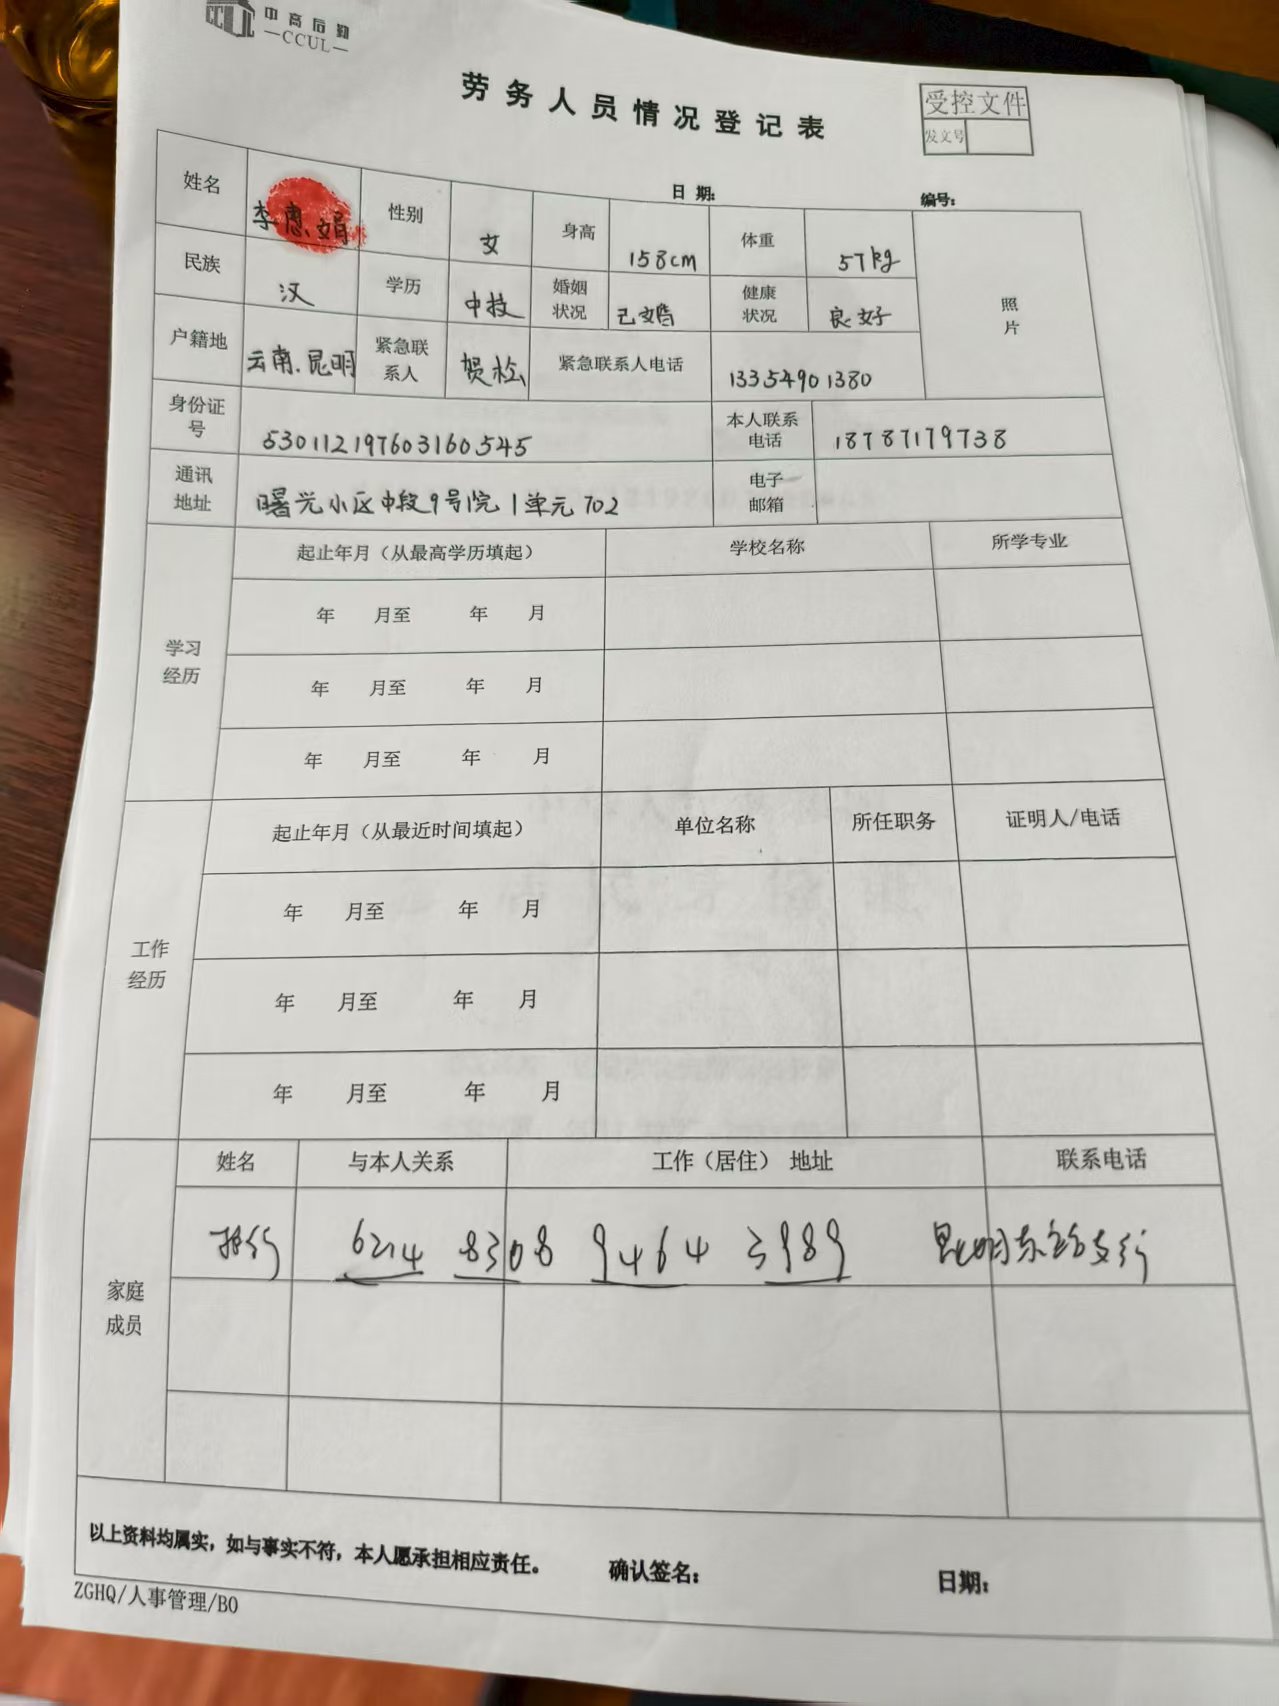 中高后勤
—CCUL—
劳务人员情况登记表
受控文件
发文号
日 期: 编号:
姓名 李惠娟 性别 女 身高 158cm 体重 57kg 照片
民族 汉 学历 中技 婚姻状况 已婚 健康状况 良好
户籍地 云南.昆明 紧急联系人 贺松 紧急联系人电话 13354901380
身份证号 530112197603160545 本人联系电话 18787179738
通讯地址 曙光小区中段9号院1单元702 电子邮箱
学习经历 起止年月（从最高学历填起） 学校名称 所学专业
年 月至 年 月
年 月至 年 月
年 月至 年 月
工作经历 起止年月（从最近时间填起） 单位名称 所任职务 证明人/电话
年 月至 年 月
年 月至 年 月
年 月至 年 月
家庭成员 姓名 与本人关系 工作（居住） 地址 联系电话
招行 6214 8308 9464 3989 昆明东支行
以上资料均属实，如与事实不符，本人愿承担相应责任。 确认签名: 日期:
ZGHQ/人事管理/B0